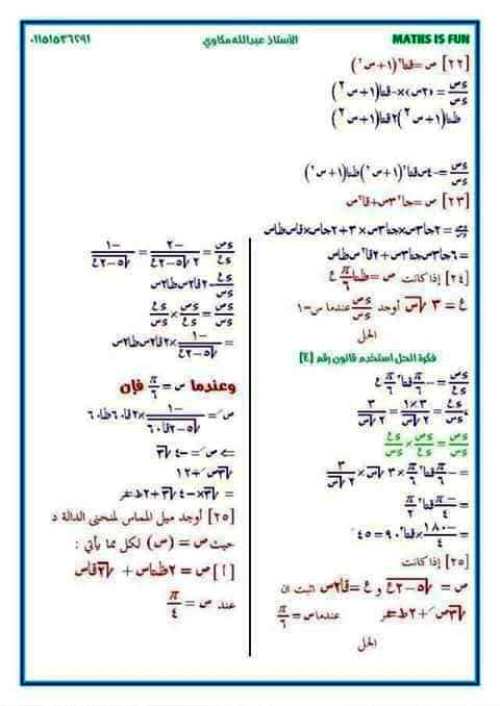 MATHS IS FUN
الأستاذ عبدالله مكاوي
٠١١٥١٥٣٦٢٩١
[٢٢] ص = قتا٢(١+س٢)
ءص/ءس = (٢س)×-قتا(١+س٢)
ظتا(١+س٢)٢قتا(١+س٢)
ءص/ءس = -٤س قتا٢(١+س٢)ظتا(١+س٢)
[٢٣] ص = جا٢٣س+قا٢س
= ٢جا٣س×جتا٣س×٣+٢قاس×قاس ظاس
= ٦جا٣س جتا٣س+٢قا٢س ظاس
[٢٤] إذا كانت ص = ظتا π/٦ ع
ع = ٣√س أوجد ءص/ءس عندما س=١
الحل
فكرة الحل استخدم قانون رقم [٤]
ءص/ءع = -π/٦ قتا٢ π/٦ ع
ءع/ءس = ٣×١/٢√س = ٣/٢√س
ءص/ءس = ءص/ءع × ءع/ءس
= -π/٦ قتا٢ π/٦ ×٣√س× ٣/٢√س
= -π/٤ قتا٢ π/٢
= -١٨٠/٤ ×قتا٢ ٩٠ = ٤٥
[٢٥] إذا كانت
ص = √٥-٢ع و ع = قا٢س اثبت ان
√٣ص َ+٢ط=صفر عندما س = π/٦
الحل
ءص/ءع = -٢/٢√٥-٢ع = -١/√٥-٢ع
ءع/ءس = ٢قا٢س ظا٢س
ءص/ءس = ءص/ءع × ءع/ءس
= -١/√٥-٢ع ×٢قا٢س ظا٢س
وعندما س = π/٦ فإن
ص َ = -١/√٥-٢قا٦٠ ×٢قا٦٠ظا٦٠
⇐ ص َ = -٤√٣
√٣ص َ+١٢
= √٣×-٤√٣+١٢=صفر
[٢٥] أوجد ميل المماس لمنحنى الدالة د
حيث ص = (س) لكل مما يأتي :
[أ] ص = ٢ظتاس + √٢قاس
عند س = π/٤